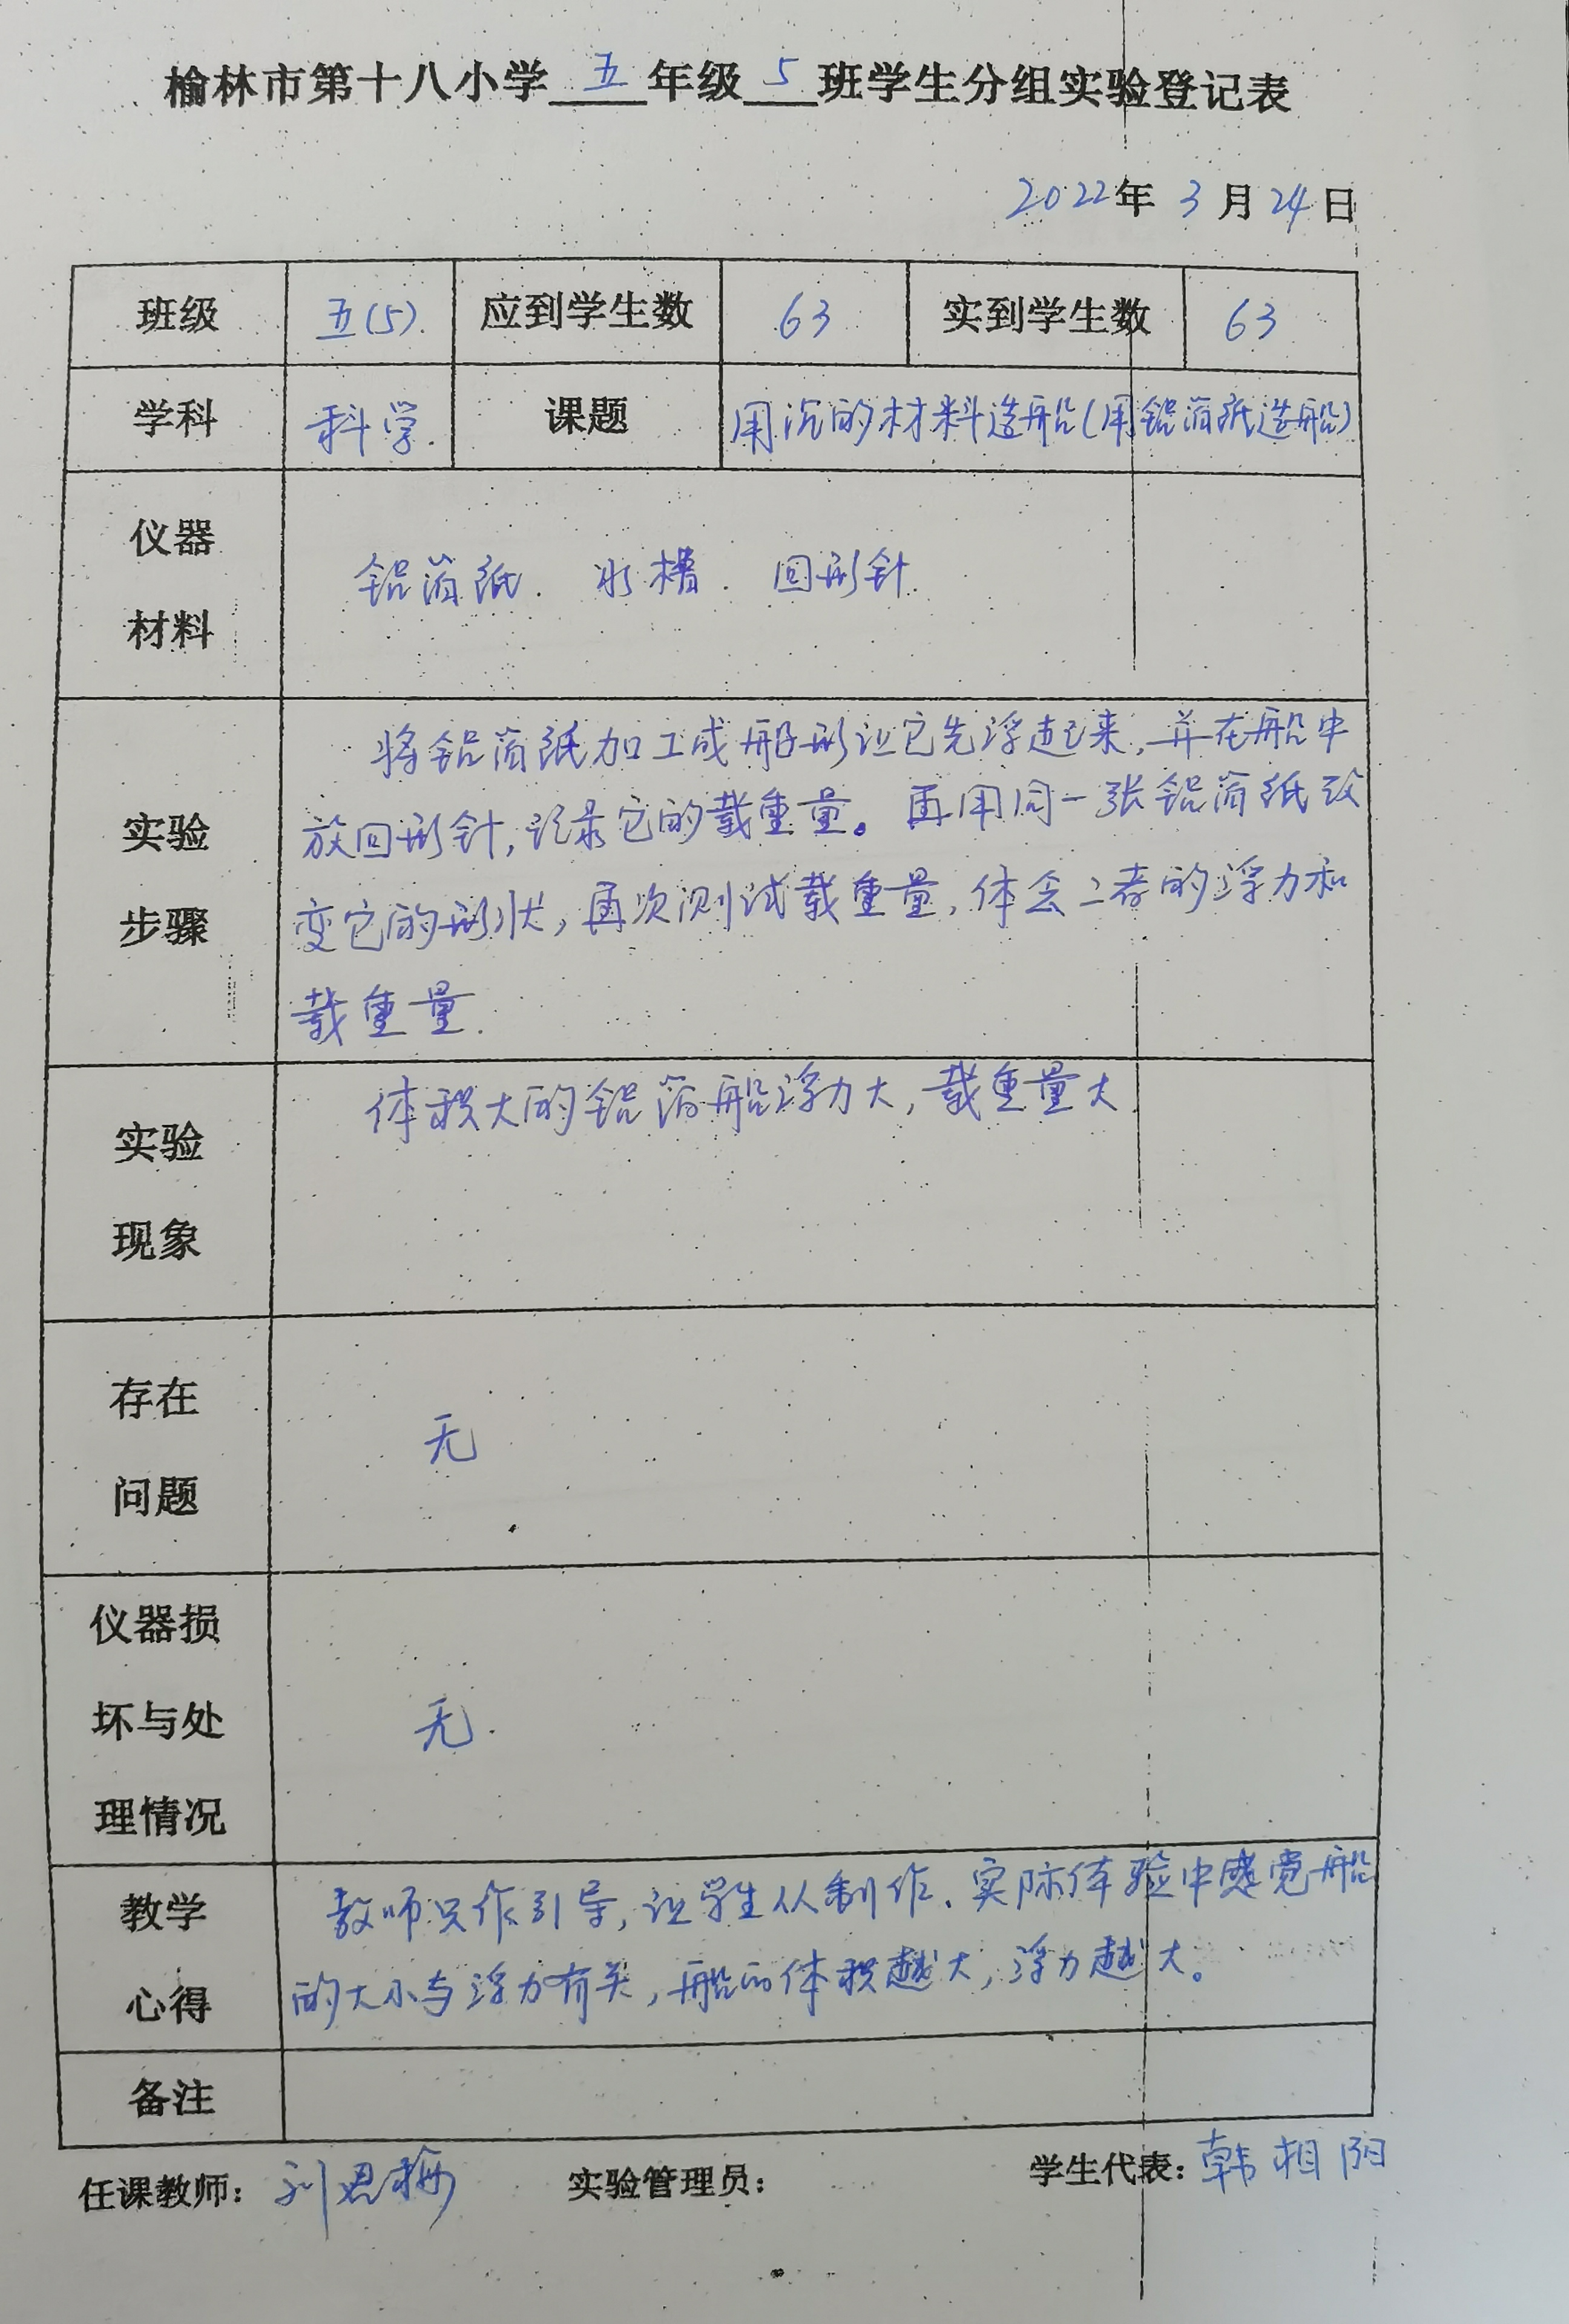 榆林市第十八小学 五 年级 5 班学生分组实验登记表
2022年 3 月 24 日
班级 五(5). 应到学生数 63 实到学生数 63
学科 科学. 课题 用沉的材料造船(用铝箔纸造船)
仪器
材料
铝箔纸. 水槽. 回形针.
实验
步骤
将铝箔纸加工成船形让它先浮起来,并在船中
放回形针,记录它的载重量。再用同一张铝箔纸改
变它的形状,再次测试载重量,体会二者的浮力和
载重量.
实验
现象
体积大的铝箔船浮力大,载重量大
存在
问题
无
仪器损
坏与处
理情况
无.
教学
心得
教师只作引导,让学生从制作、实际体验中感觉船
的大小与浮力有关,船的体积越大,浮力越大。
备注
任课教师: 刘 实验管理员: 学生代表: 韩相阳